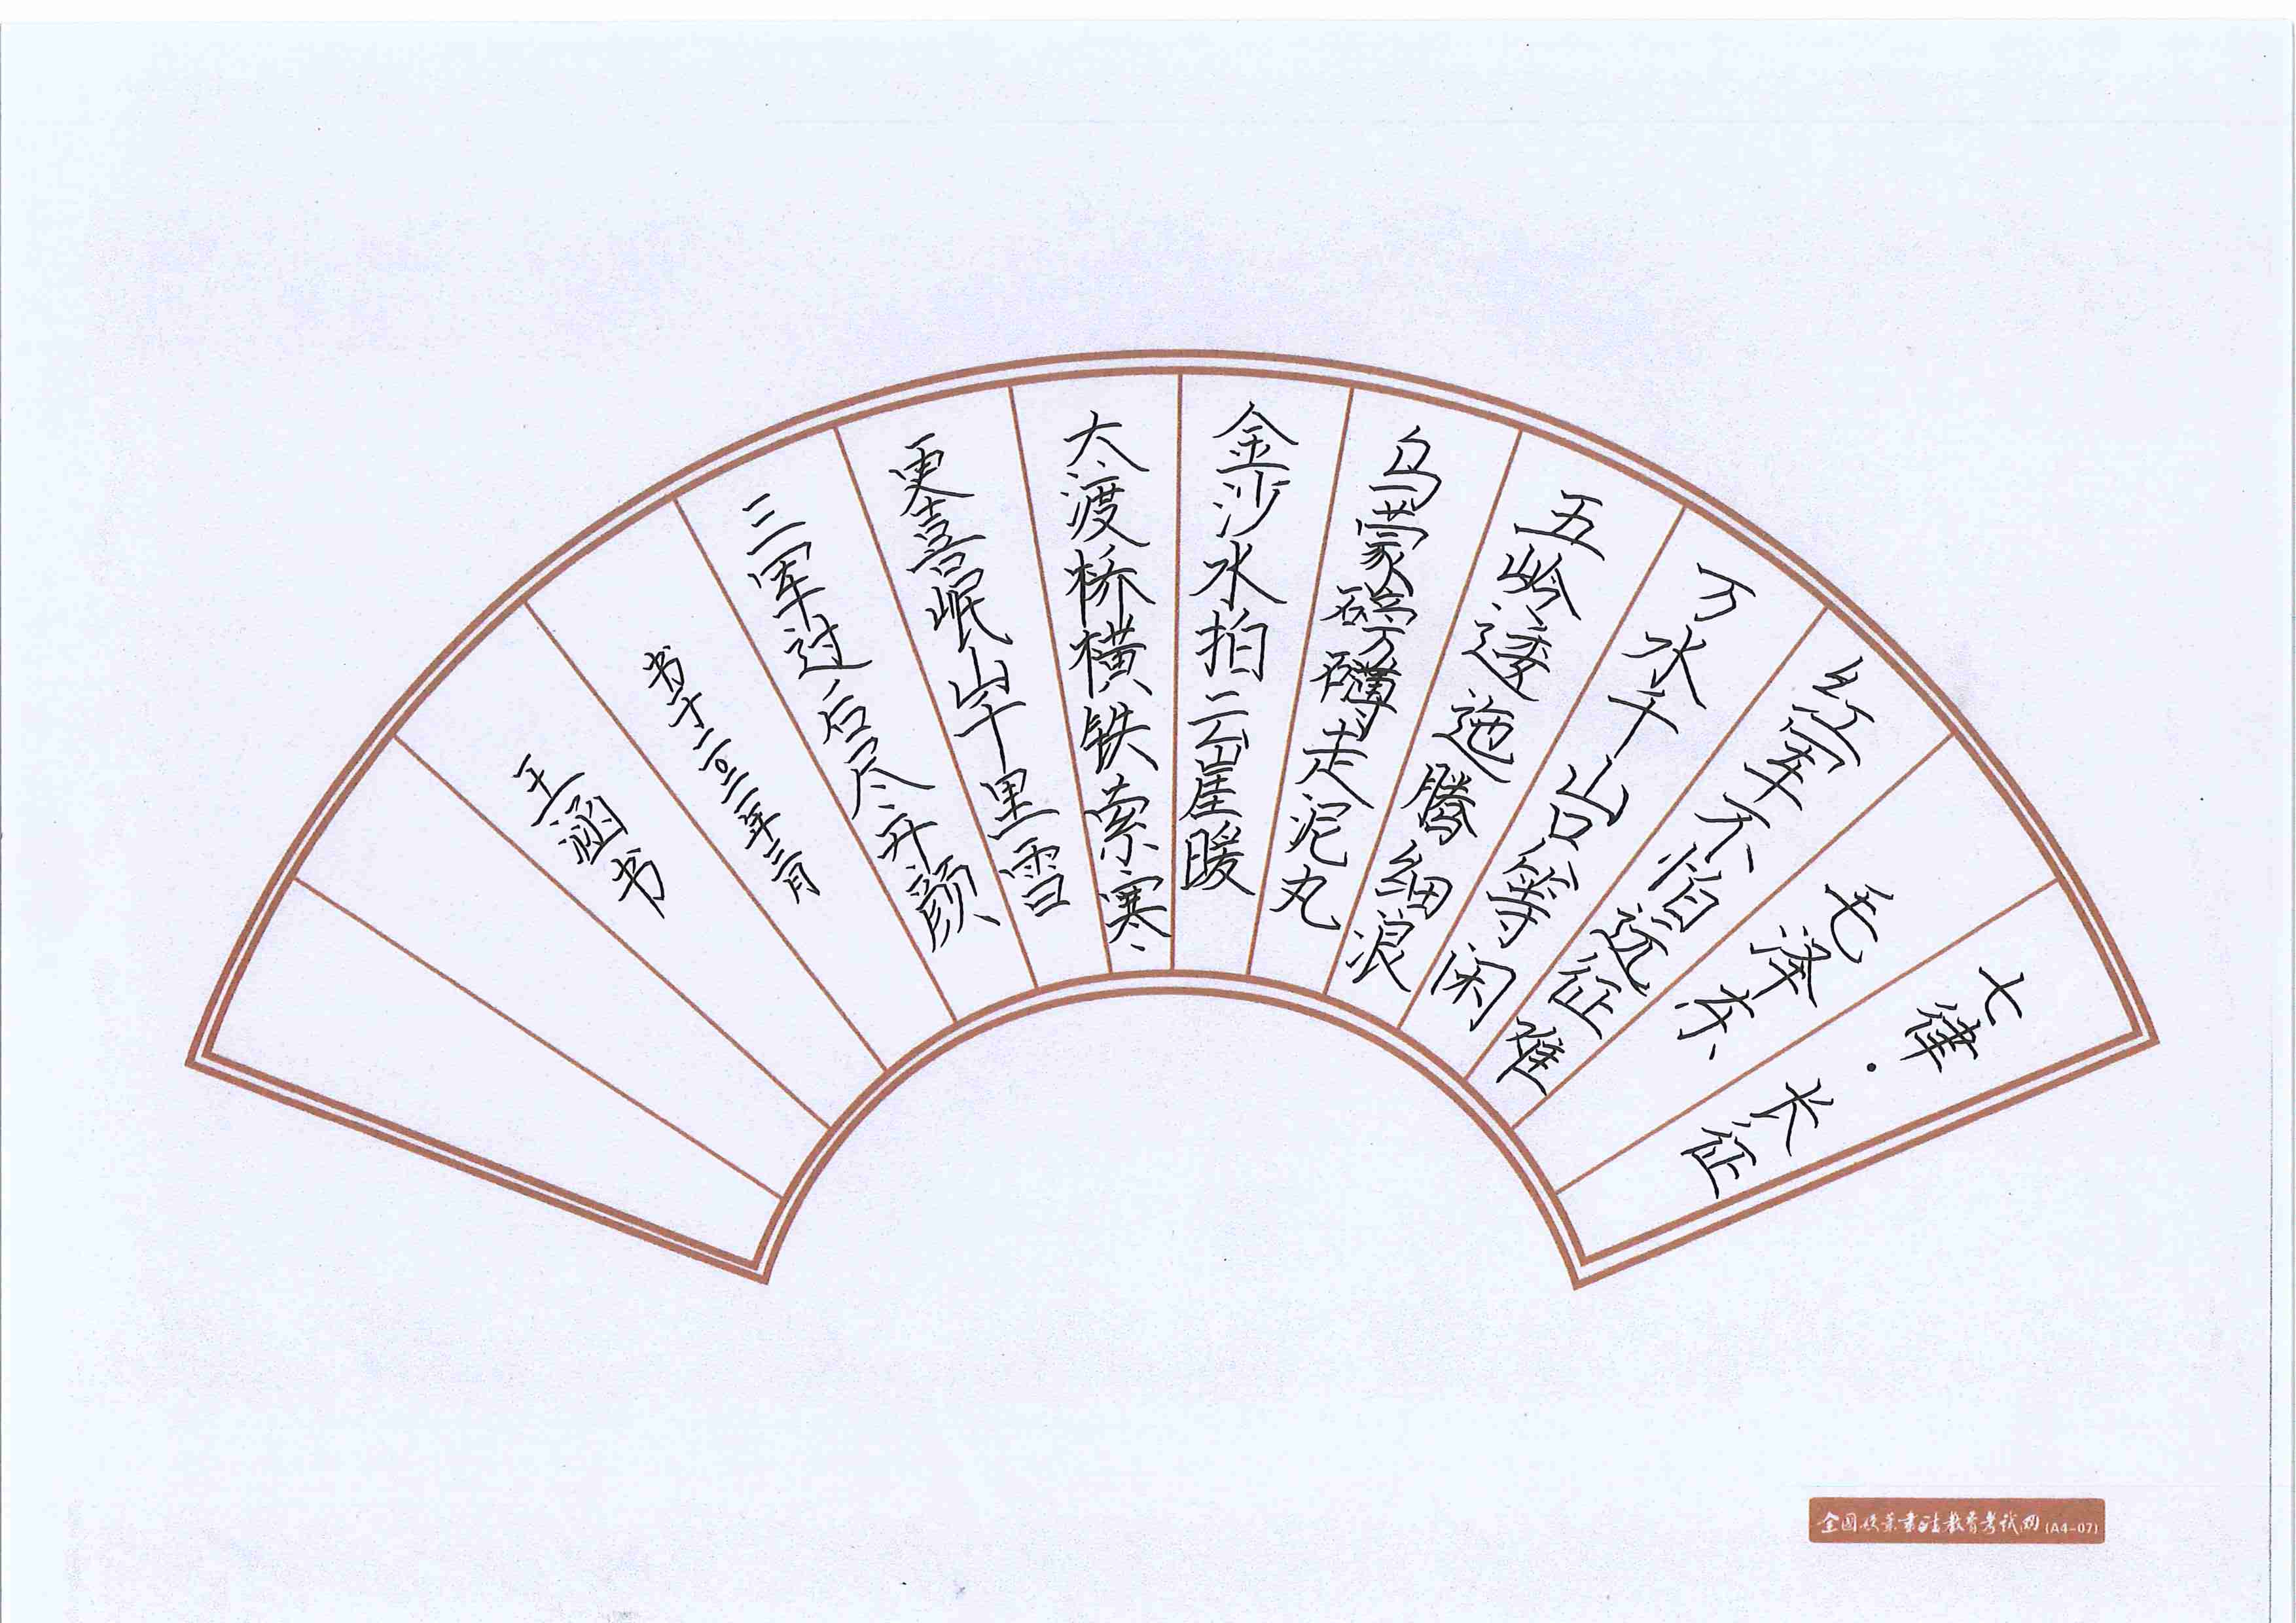 七律·长征
毛泽东
红军不怕远征难
万水千山只等闲
五岭逶迤腾细浪
乌蒙磅礴走泥丸
金沙水拍云崖暖
大渡桥横铁索寒
更喜岷山千里雪
三军过后尽开颜
书于二〇二年月
王涵书
全国书法教育考试网 (A4-07)